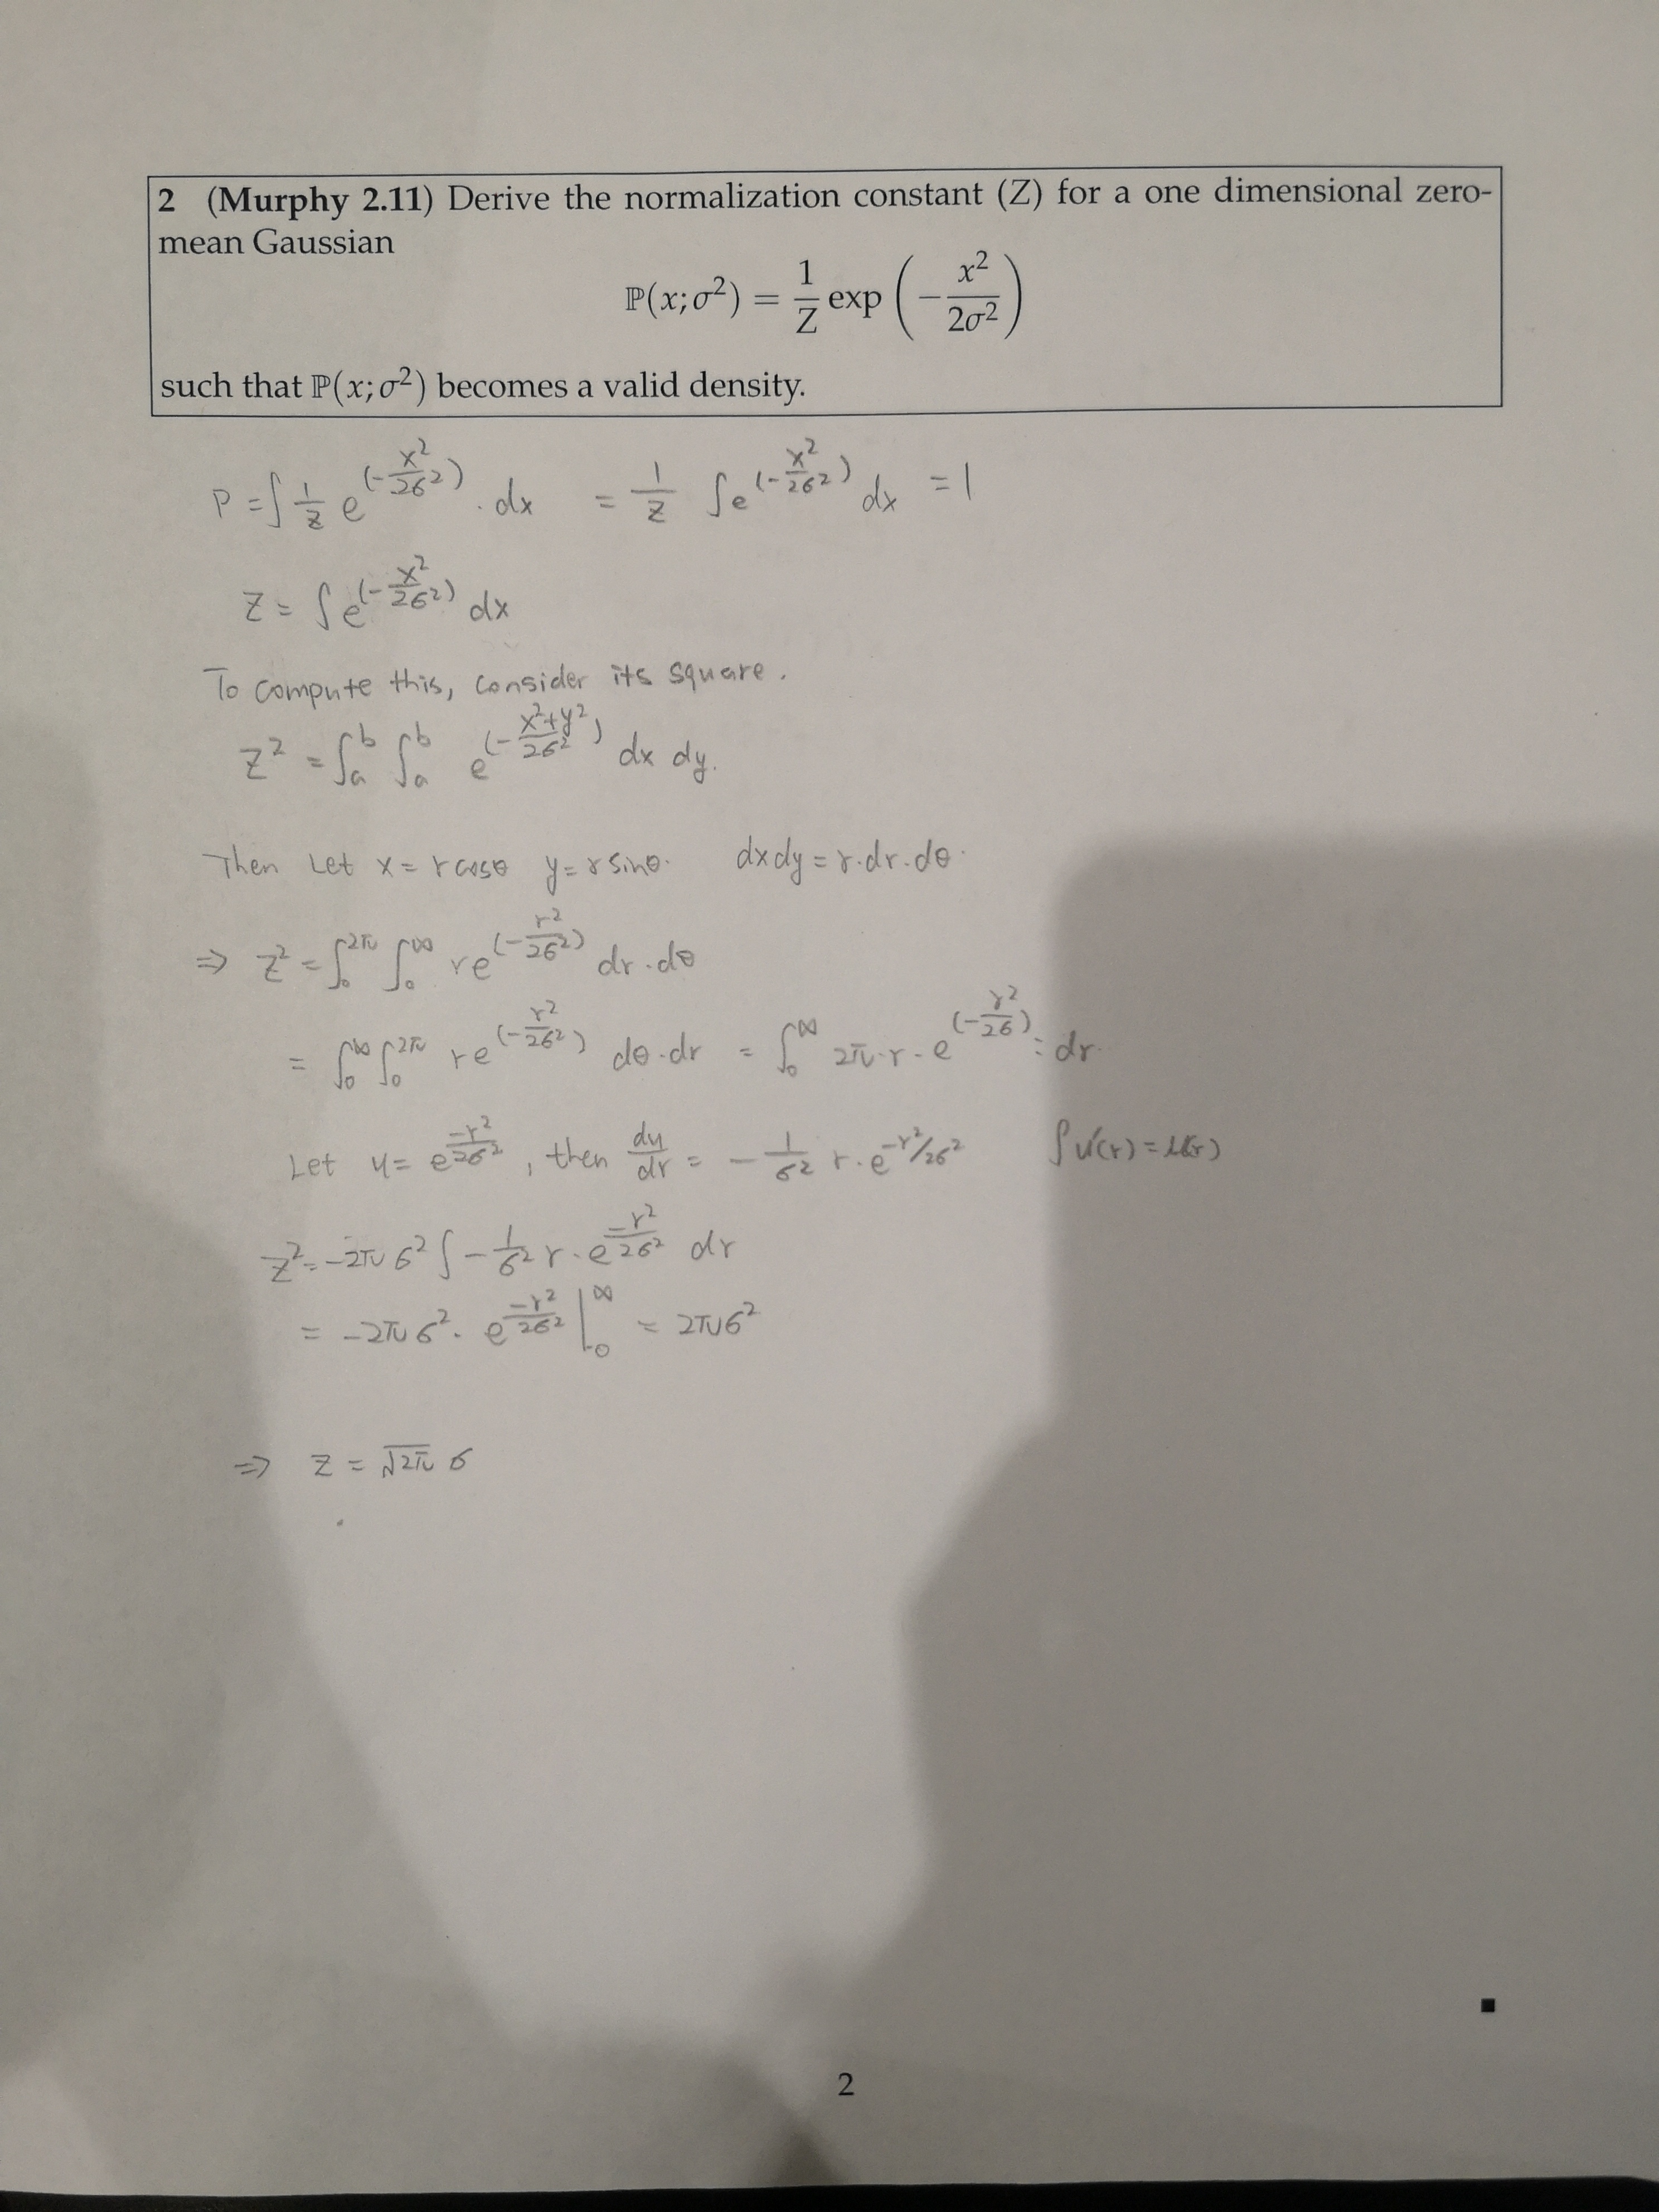 2 (Murphy 2.11) Derive the normalization constant (Z) for a one dimensional zero-
mean Gaussian
ℙ(x; σ²) = 1/Z exp(−x²/2σ²)
such that ℙ(x; σ²) becomes a valid density.
P = ∫ 1/Z e^(-x²/2σ²) · dx = 1/Z ∫ e^(-x²/2σ²) dx = 1
Z = ∫ e^(-x²/2σ²) dx
To compute this, consider its square.
Z² = ∫_a^b ∫_a^b e^(-x²+y²/2σ²) dx dy.
Then Let x = r cosθ y = r sinθ. dxdy = r·dr·dθ.
⇒ Z² = ∫_0^2π ∫_0^∞ r e^(-r²/2σ²) dr·dθ
= ∫_0^∞ ∫_0^2π r e^(-r²/2σ²) dθ·dr = ∫_0^∞ 2π·r·e^(-r²/2σ) dr.
Let u = e^(-r²/2σ²), then du/dr = -1/σ² r·e^(-r²/2σ²) ∫u'(r) = u(r)
Z² = -2πσ² ∫ -1/σ² r·e^(-r²/2σ²) dr
= -2πσ²· e^(-r²/2σ²) |_0^∞ = 2πσ²
⇒ Z = √2π σ
2